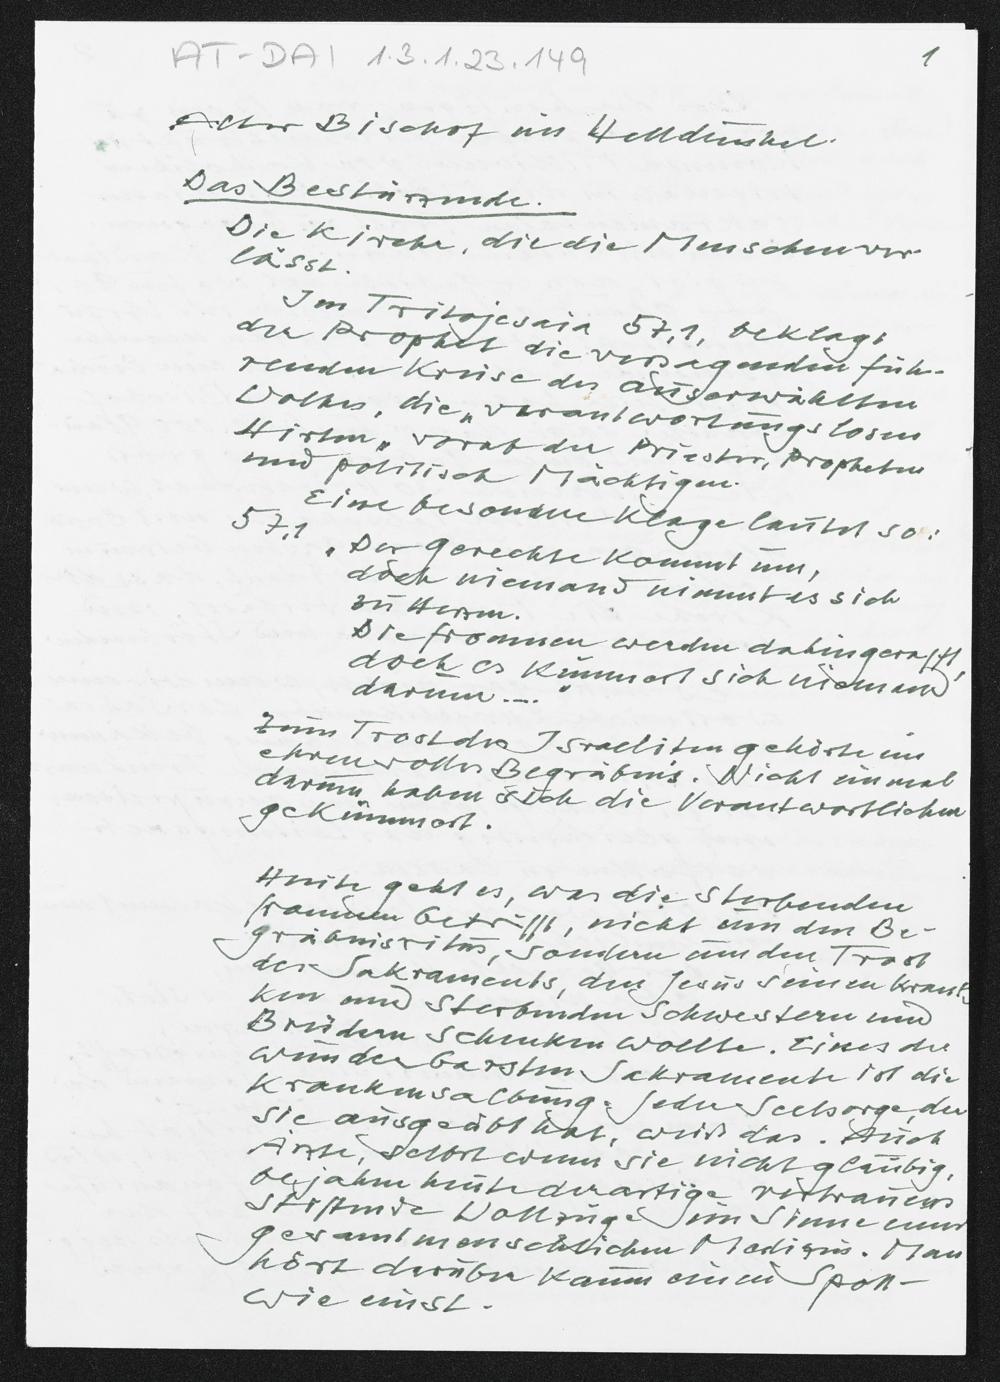 AT-DAI 1.3.1.23.149
1
Alter Bischof im Helldunkel.
Das Bestürzende.
Die Kirche, die die Menschen ver-
lässt.
Im Tritojesaia 57,1, beklagt
der Prophet die versagenden füh-
renden Kreise des auserwählten
Volkes, die „verantwortungslosen
Hirten„ vorab der Priester, Propheten
und politisch Mächtigen.
Eine besondere Klage lautet so:
57,1 „Der Gerechte kommt um,
doch niemand nimmt es sich
zu Herzen.
Die frommen werden dahingerafft,
doch es kümmert sich niemand
darum....
Zum Trost des Israeliten gehörte ein
ehrenvolles Begräbnis. Nicht einmal
darum haben sich die Verantwortlichen
gekümmert.
Heute geht es, was die sterbenden
frommen betrifft, nicht um den Be-
gräbnisritus, sondern um den Trost
des Sakraments, den Jesus seinen kran-
ken und sterbenden Schwestern und
Brüdern schenken wollte. Eines der
wunderbarsten Sakramente ist die
Krankensalbung. Jeder Seelsorger, der
sie ausgeübt hat, weiß das. Auch
Ärzte, selbst wenn sie nicht gläubig,
bejahen heute derartige vertrauens
stiftende Vollzüge im Sinne einer
gesamtmenschlichen Medizin. Man
hört darüber kaum einen Spott
wie einst.